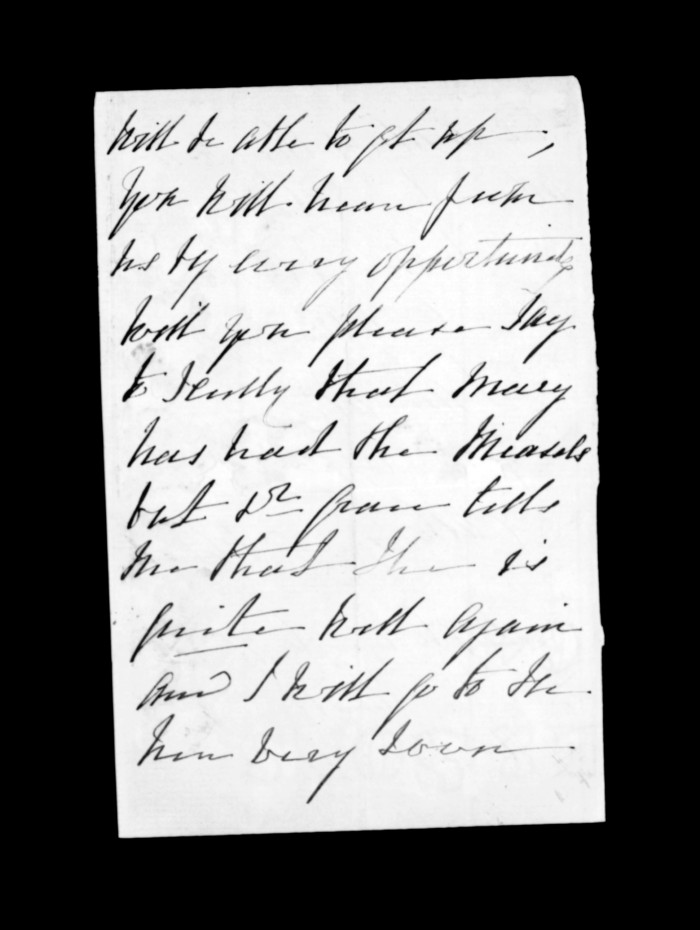 will be able to get up,
you will hear from
us by every opportunity
Will you please say
to Scully that Mary
has had the Measels
but Dr Grace tells
me that she is
quite well again
and I will go to see
her very soon